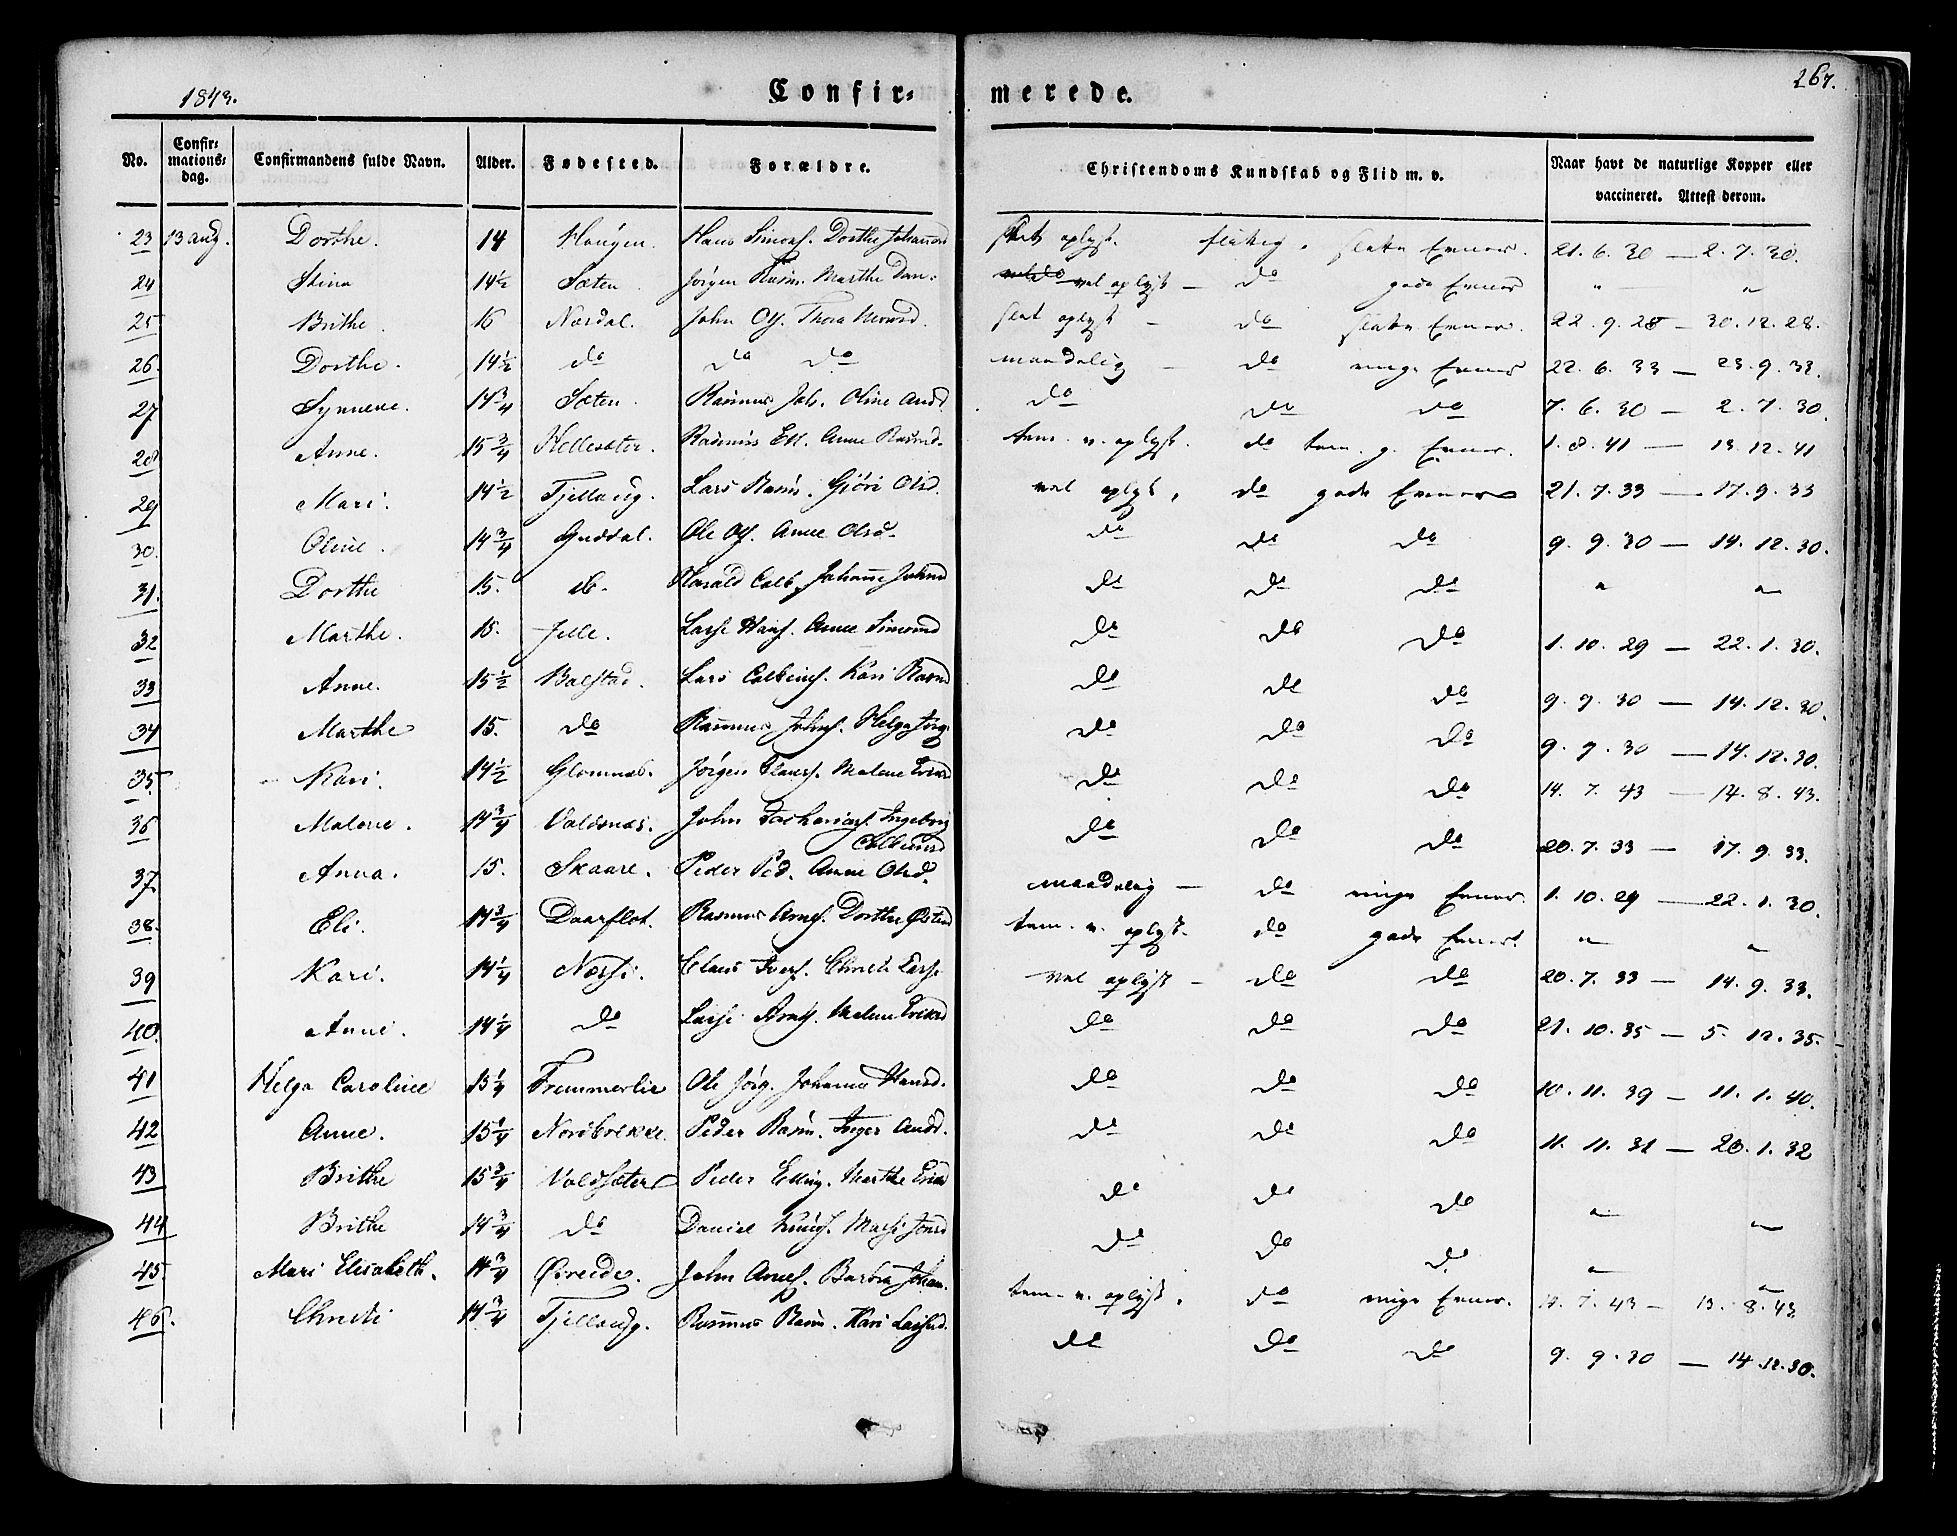 1843.
Confir=
merede.
267.
No. Confir=mations=dag. Confirmandens fulde Navn. Alder. Fødested. Forældre. Christendoms Kundskab og Flid m. v. Naar havt de naturlige Kopper eller vaccineret. Attest derom.
23 13 aug. Dorthe. 14 Haugen. Hans Simons. Dorthe slet oplyst. flittig. slette Evner. 21. 6. 30 — 2. 7. 30.
24 Stina 14½ Sæten. Jörgen Rasm. Marthe Dan: vel oplyst — do gode Evner " — "
25 Brithe. 16 Nærdal. John Ols. Thora slet oplyst — do slette Evner. 22. 9. 28 — 30. 12. 28.
26. Dorthe. 14½ do do do maadelig — do ringe Evner 22. 6. 33 — 23. 9. 33.
27 Synneve. 14¾ Sæten. Rasmus Joh. Oline And. do do do 7. 6. 30 — 2. 7. 30.
28 Anne. 15¾ Hellesæter. Rasmus Ell. Anne Rasmd. tem. v. oplyst. do tem. g. Evner. 1. 8. 41 — 13. 12. 41
29 Mari. 14½ Fjellaug. Lars Rasm. Gjöri Olsd. vel oplyst, do gode Evner 21. 7. 33 — 17. 9. 33
30. Oline. 14¾ Guddal. Ole Ols. Anne Olsd. do do do 9. 9. 30 — 14. 12. 30.
31. Dorthe 15. do. Harald Colb. Johanne Johnd do do do " "
32 Marthe. 15. Lasse Hans. Anne Simonsd do do do 1. 10. 29 — 22. 1. 30.
33 Anne. 15½ Balstad. Lars Colbeins. Kari Rasmd do do do 9. 9. 30 — 14. 12. 30.
34 Marthe 15. do Rasmus Johns. Helga Jörg. do do do 9. 9. 30 — 14. 12. 30.
35 Kari. 14½ Glomnes. Jörgen Clauss. Malene Eriksd do do do 14. 7. 43 — 14. 8. 43.
36 Malene. 14¾ Valdsnæs. John Zacharias. Ingeborg Colbeinsd do do do 20. 7. 33 — 17. 9. 33.
37. Anna. 15. Skaare. Peder Ped. Anne Olsd. maadelig — do ringe Evner. 1. 10. 29 — 22. 1. 30.
38. Eli. 14¾ Daarflot. Rasmus Arnes. Dorthe tem. v. oplyst. do gode Evner. " "
39 Kari. 14¼ Næsse. Claus Ivers. Christi Lasse. vel oplyst — do do 20. 7. 33 — 14. 9. 33.
40. Anne. 14¼ do Lasse Arns. Malene Eriksd do do do 21. 10. 35 — 5. 12. 35.
41 Helga Caroline 15¼ Fremmerlie Ole Jörg. Johanna Hansd. do do do 10. 11. 39 — 11. 1. 40.
42 Anne. 15¼ Nordbrekke. Peder Rasm. Inger Andd. do do do 11. 11. 31 — 20. 1. 32
43 Brithe 15¾ Valdsæter Peder Elling. Marthe Eriksd do do do " "
44 Brithe 14¾ do Daniel Knuds. Massi Jonsd do do do " "
45 Mari Elisabeth. 14¾ Övreide. John Arnes. Barbra Johan. tem. v. oplyst, do ringe Evner. 12. 7. 43 — 13. 8. 43.
46. Christi 14¾ Fjellaug. Rasmus Rasm. Kari Lassesd. do do do 9. 9. 30 — 14. 12. 30.